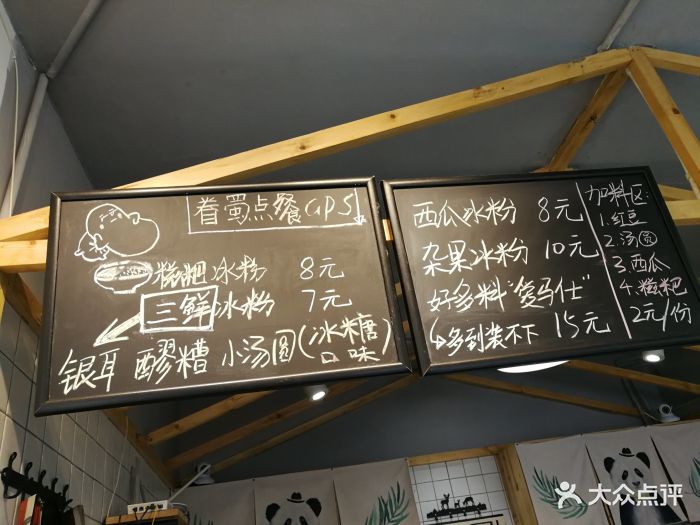 眷蜀点餐GPS
糍粑冰粉 8元
三鲜冰粉 7元
银耳 醪糟 小汤圆(冰糖口味)
西瓜冰粉 8元
杂果冰粉 10元
好多料“宽马仕”
↳多到装不下 15元
加料区:
1.红豆
2.汤圆
3.西瓜
4.糍粑
2元/份
大众点评